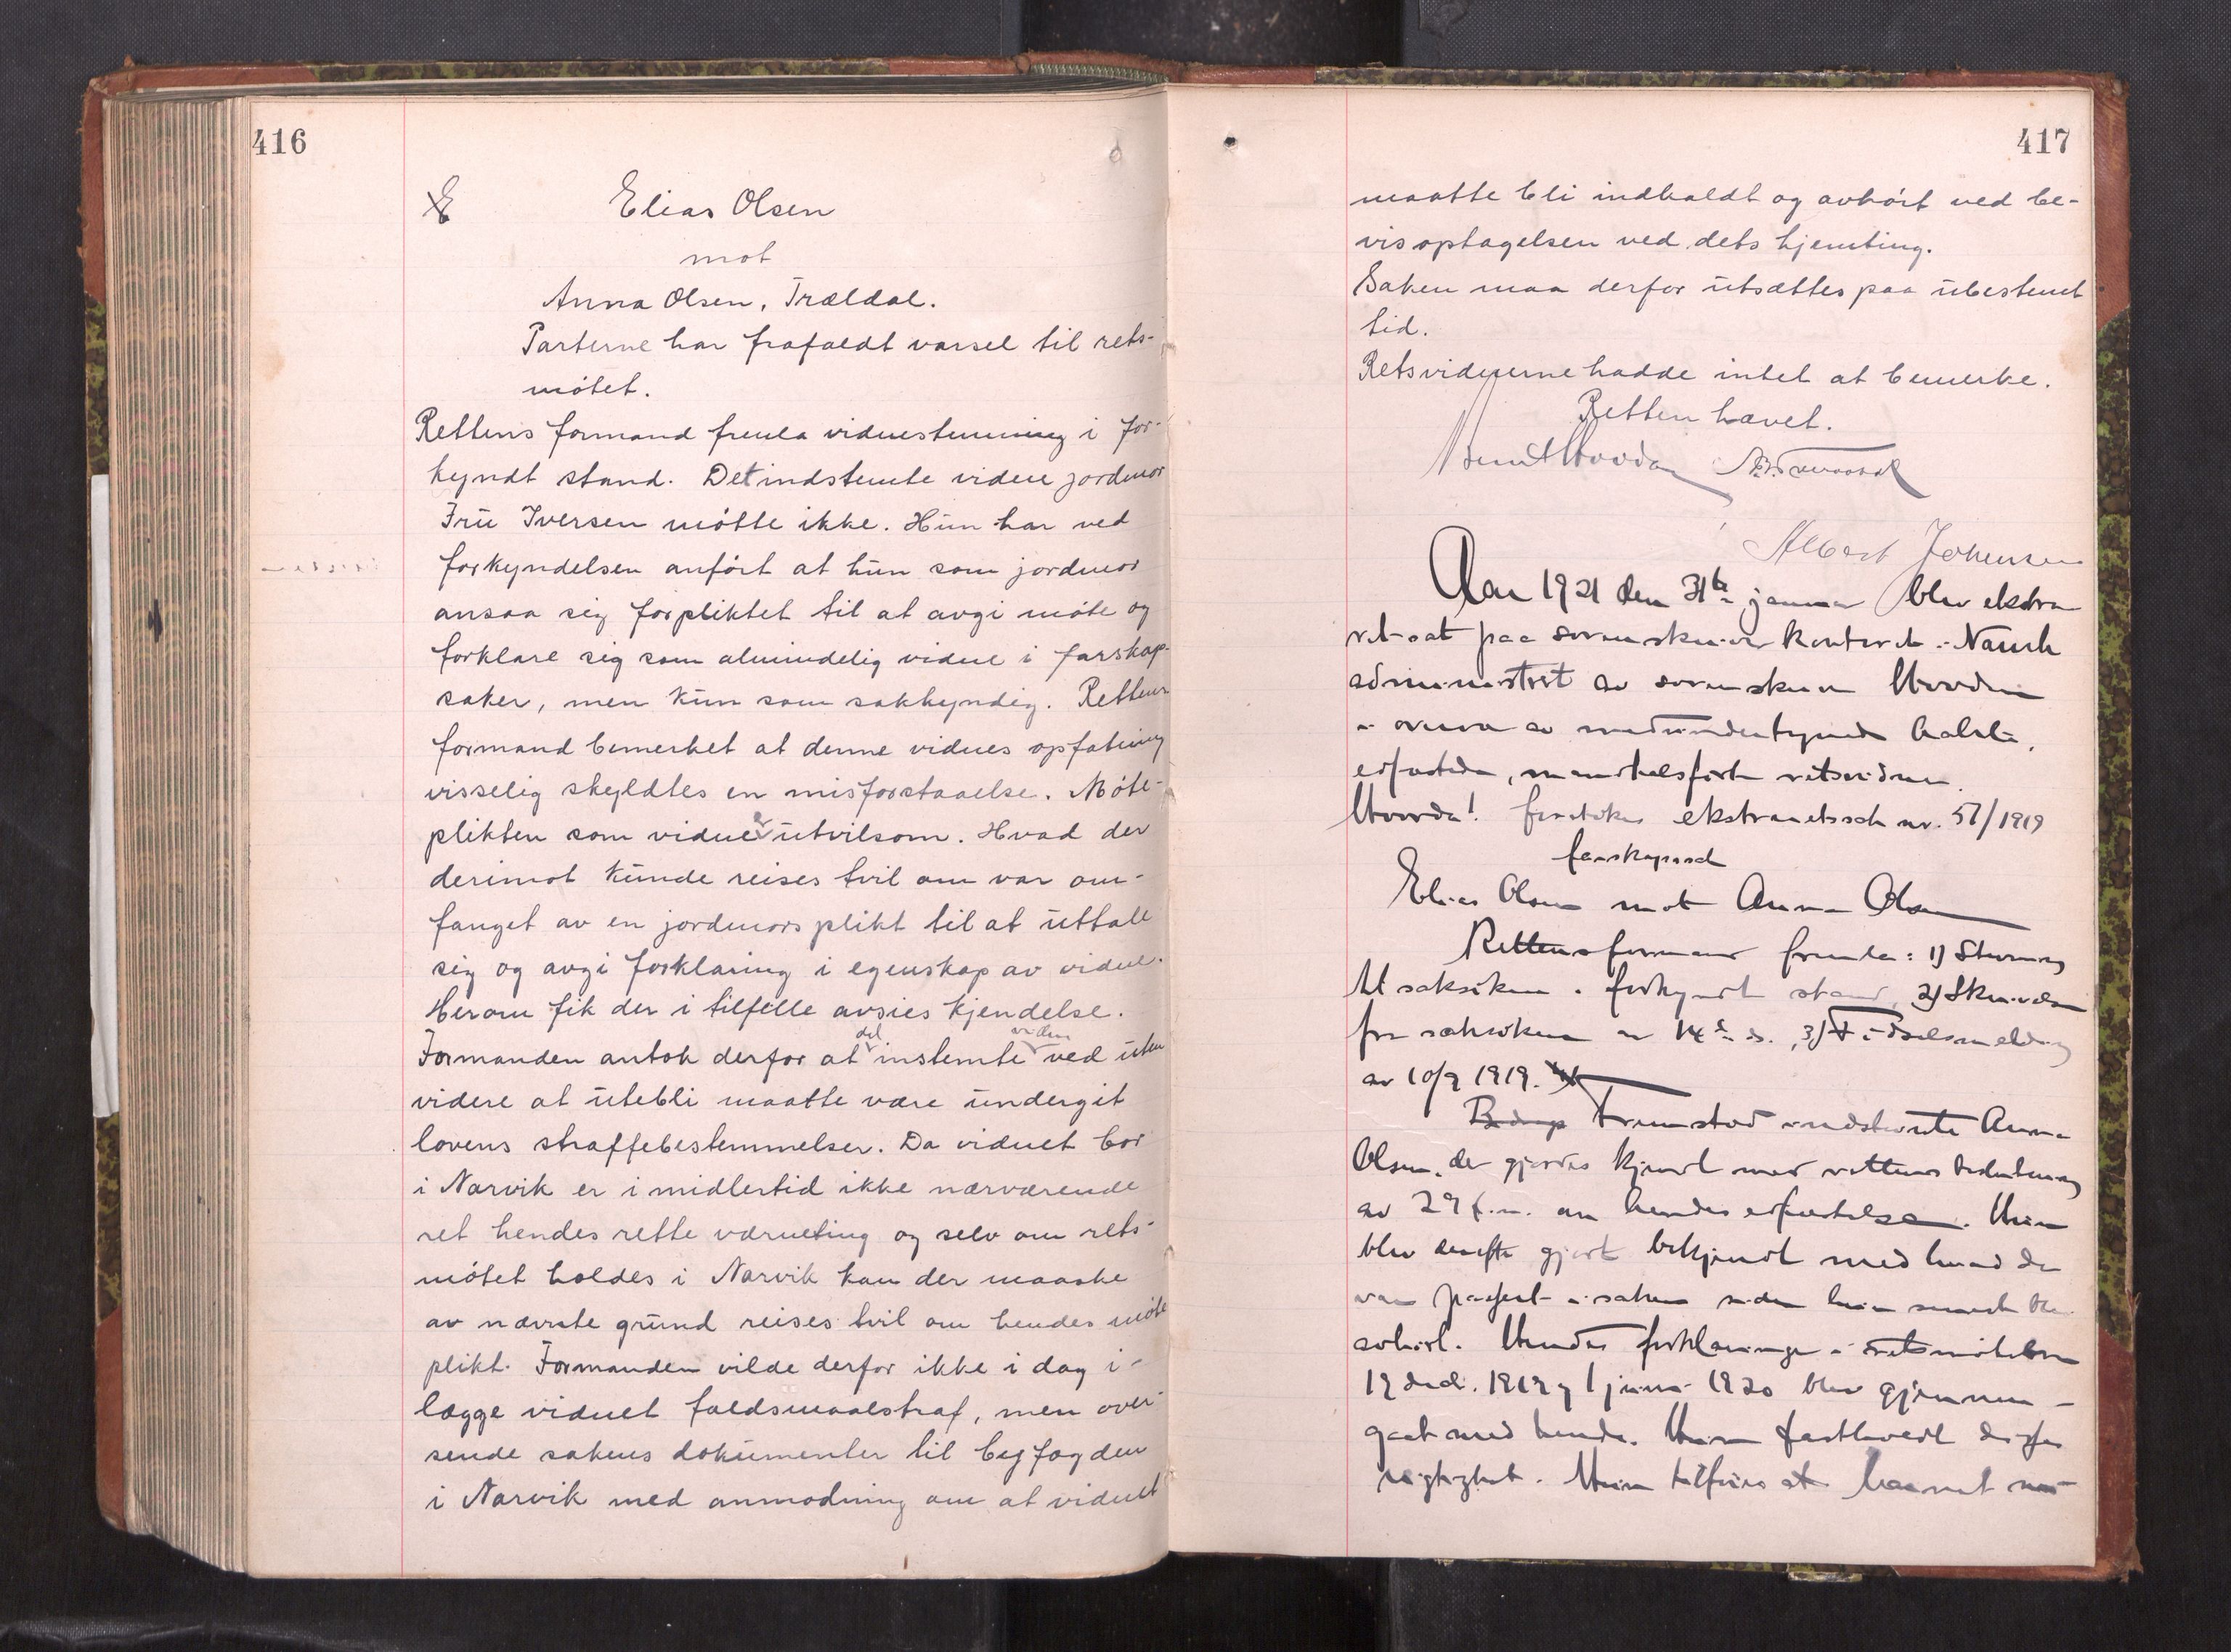 416
E
Elias Olsen
mot
Anna Olsen, Trældal.
Parterne har frafaldt varsel til rets-
møtet.
Rettens formand fremla vidnestemning i for-
kyndt stand. Det indstemte vidne jordmor
Fru Iversen møtte ikke. Hun har ved
forkyndelsen anført at hun som jordmor
ansaa sig forpliktet til at avgi møte og
forklare sig som almindelig vidne i farskap-
saker, men kun som sakkyndig. Rettens
formand bemerket at denne vidnes opfatning
visselig skyldtes en misforstaaelse. Møte-
plikten som vidne er utvilsom. Hvad der
derimot kunde reises tvil om var om-
fanget av en jordmors plikt til at uttale
sig og avgi forklaring i egenskap av vidne.
Herom fik der i tilfelle avsies kjendelse.
Formanden antok derfor at det instemte vidne ved uten
videre at utebli maatte være undergit
lovens straffebestemmelser. Da vidnet bor
i Narvik er imidlertid ikke nærværende
ret hendes rette værneting og selv om rets-
møtet holdes i Narvik kan der maaske
av nævnte grund reises tvil om hendes møte
plikt. Formanden vilde derfor ikke i dag i-
lægge vidnet faldsmaalstraf, men over-
sende sakens dokumenter til byfogden
i Narvik med anmodning om at vidnet
417
maatte bli indkaldt og avhørt ved be-
visoptagelsen ved dets hjemting.
Saken maa derfor utsættes paa ubestemt
tid.
Retsvidnerne hadde intet at bemerke.
Retten hævet.
Albert Johensen
Aar 1921 den 31te januar blev ekstra
ret sat paa sorenskriver kontoret i Narvik
administrert av sorenskriver Hovdan
i overvær av medundertegnede
edfæstede, mandtalsførte retsvidner.
Hvorda! foretokes ekstraretssak nr. 57/1919
farskapssak
Elias Olsen mot Anna Olsen
Rettens formand fremla: 1) Stevning
til saksøken i forkyndt stand, 2) Skrivelse
fra saksøkeren av 14de ds., 3) Fødselsmelding
av 10/9 1919.
Fremstod indstevnte Anna
Olsen, der gjordes kjendt med rettens beslutning
av 29 f.m. om hendes edfæstelse. Hun
blev derefter gjort bekjendt med hvad der
var passert i saken siden hun senest blev
avhørt. Hendes forklaringer i retsmøterne
19 decbr. 1919 og 1 juni 1920 blev gjennem-
gaat med hende. Hun fastholdt disses
rigtighet. Hun tilføier at barnet